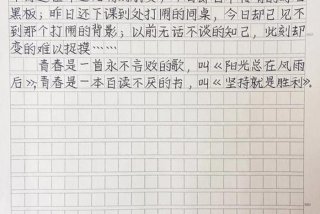 黑板；昨日还下课到处打闹的同桌，今日却已见不
到那个打闹的背影；以前无话不谈的知己，此刻却
变的难以捉摸……
青春是一首永不言败的歌，叫《阳光总在风雨
后》，青春是一本百读不厌的书，叫《坚持就是胜利》。